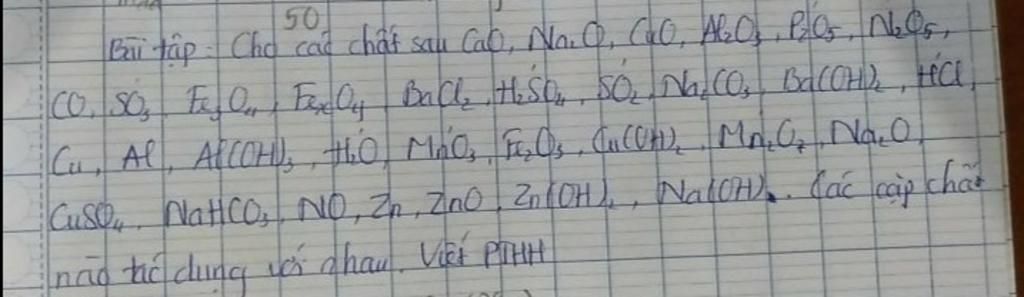 50
Bài tập: Cho các chất sau CaO, Na2O, CuO, Al2O3, P2O5, N2O5,
CO, SO3, Fe3O4, FexOy, BaCl2, H2SO4, SO2, Na2CO3, Ba(OH)2, HCl,
Cu, Al, Al(OH)3, H2O, MnO3, Fe2O3, Cu(OH)2, Mn2O7, Na2O,
CuSO4, NaHCO3, NO, Zn, ZnO, Zn(OH)2, Na(OH). Các cặp chất
nào tác dụng với nhau. Viết PTHH